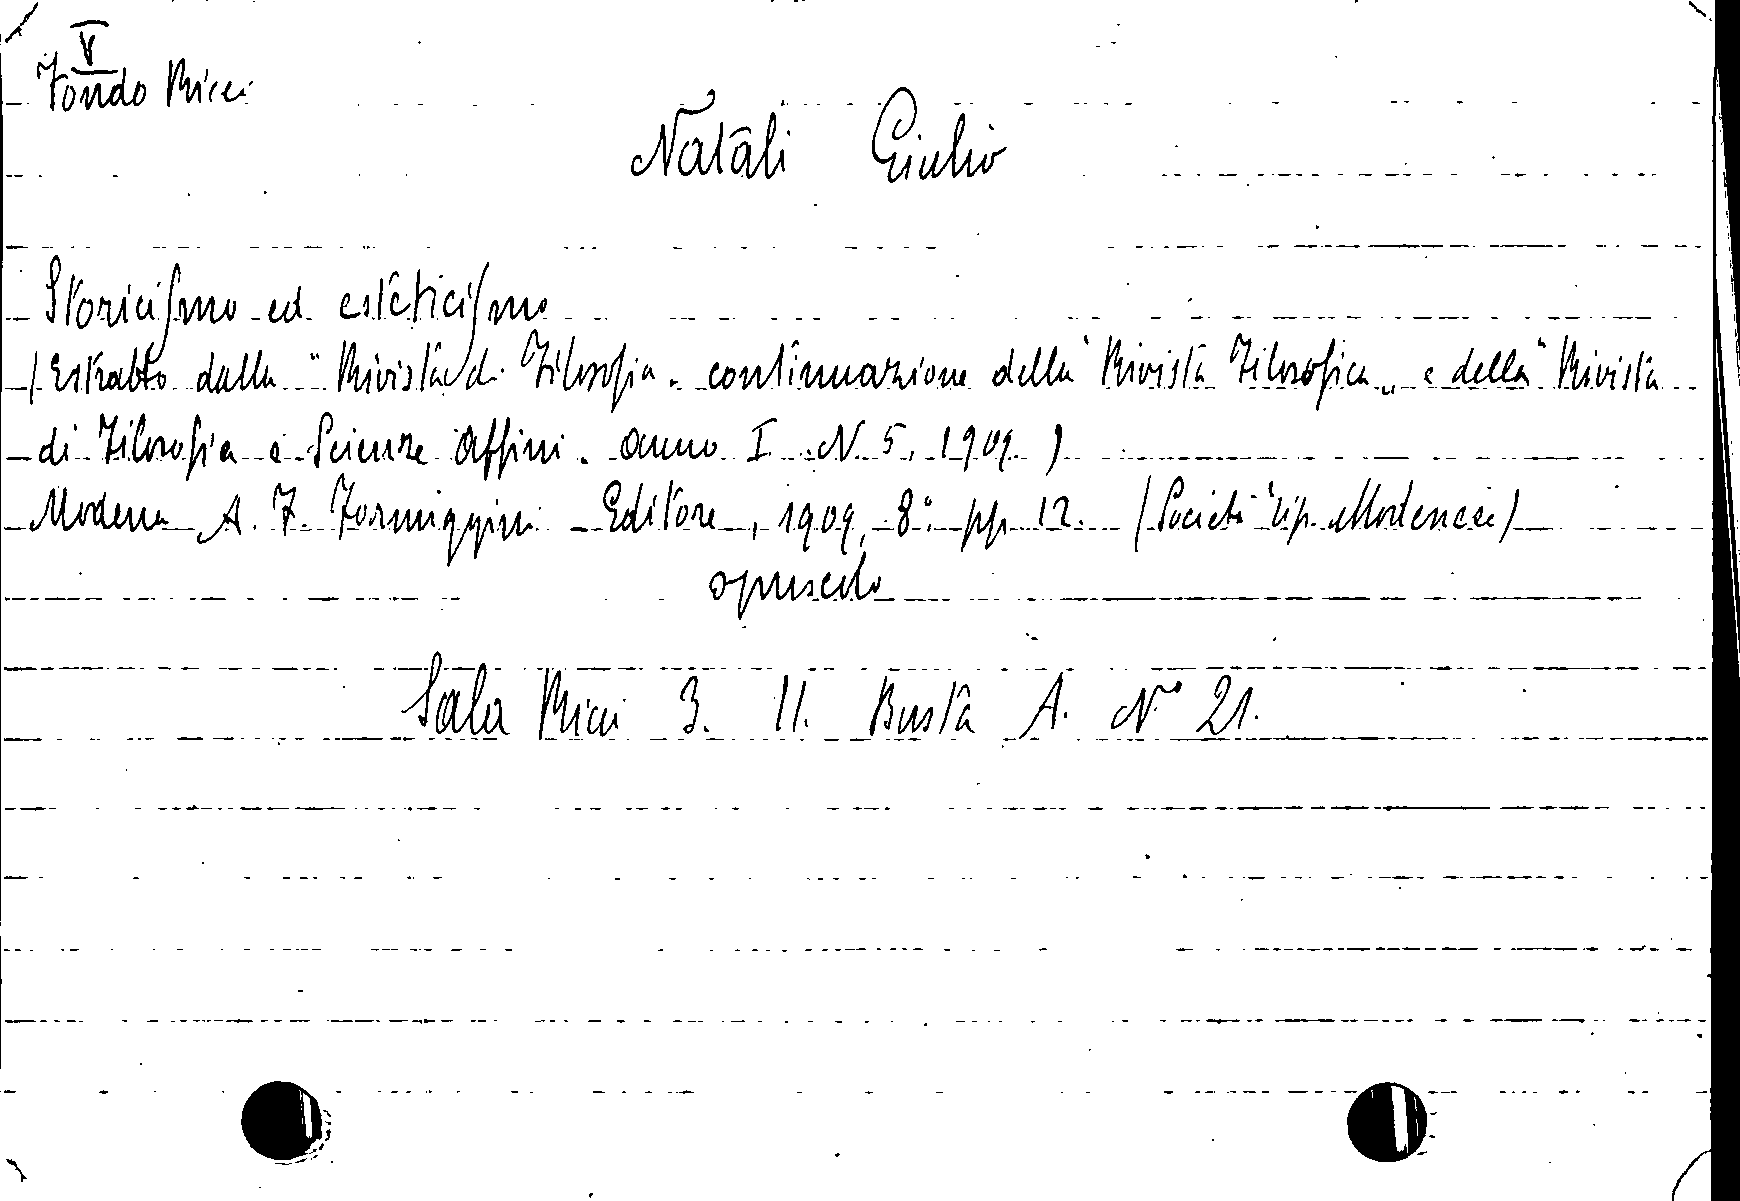 V
Fondo Ricci
Natali Giulio
Storicismo ed esteticismo
(Estratto dalla "Rivista di Filosofia. continuazione della "Rivista Filosofica" e della "Rivista
di Filosofia e Scienze affini. anno I. N. 5, 1909.)
Modena A. F. Formiggini - Editore, 1909, 8° pp 12. (Società Tip. Modenese)
opuscolo
Sala Ricci 3. 11. Busta A. N° 21.